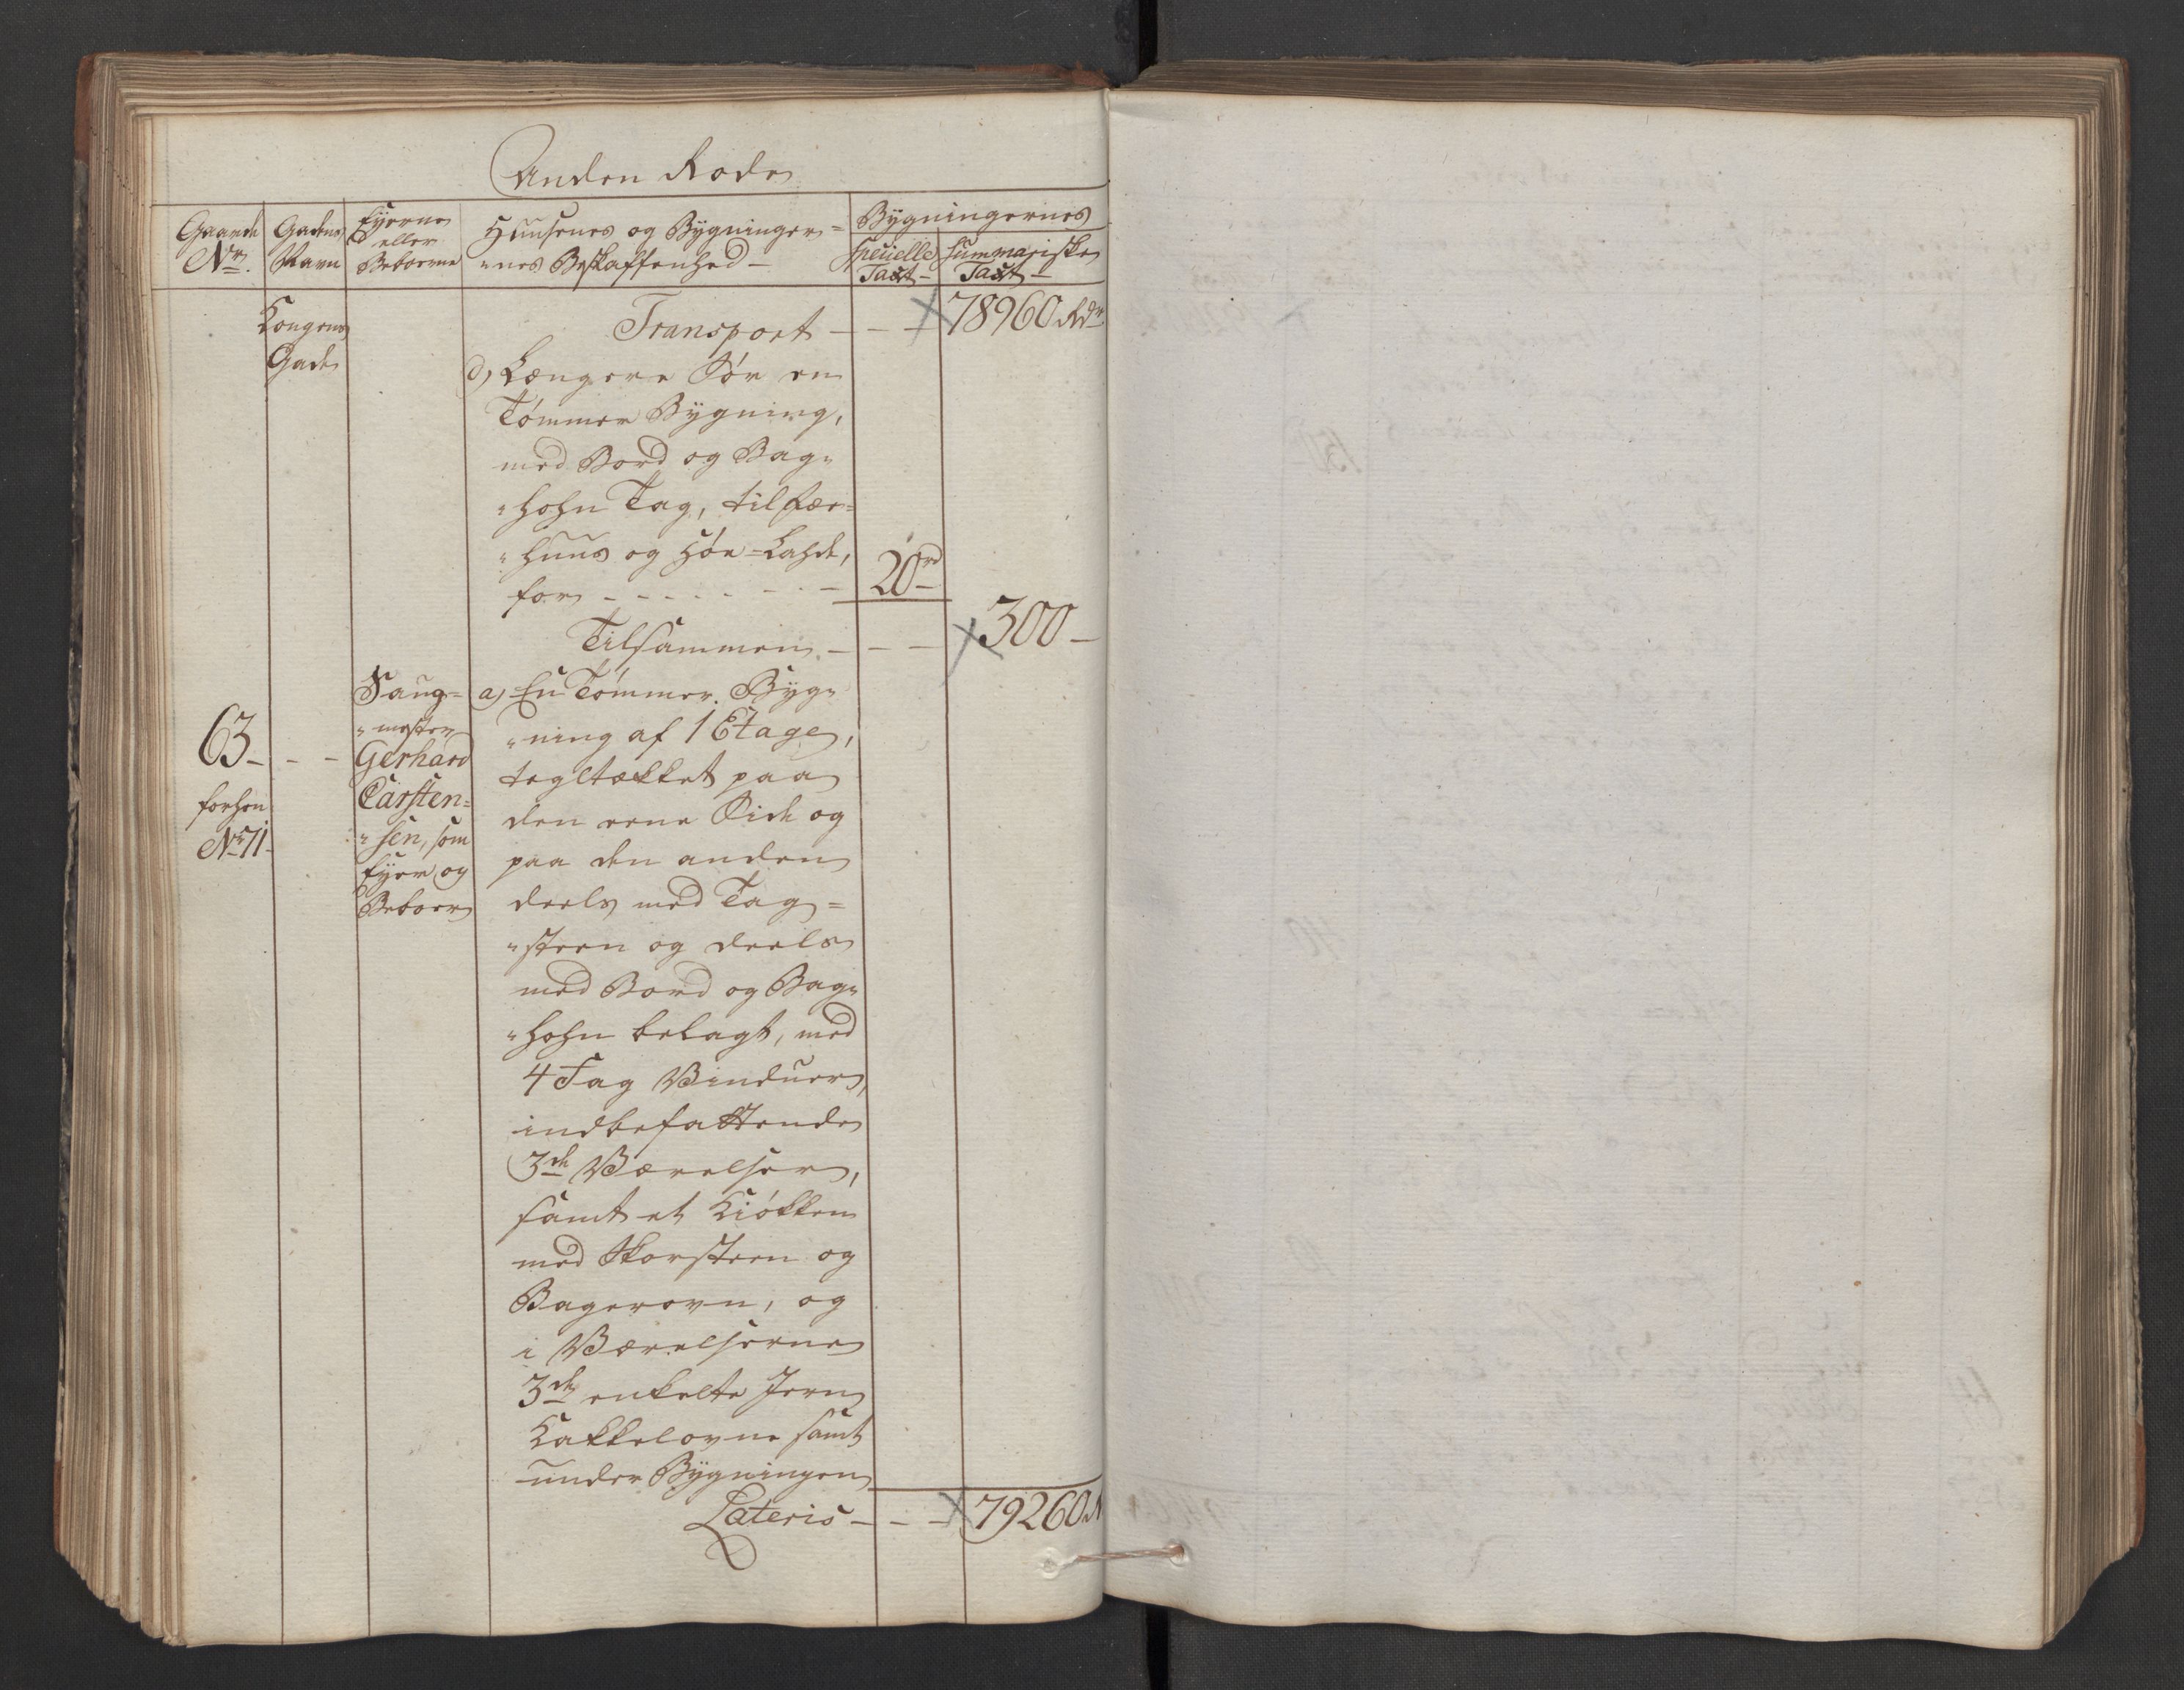 Anden Rode
Gaarde Nr.
Gadens Navn
Eyerne eller Beboerne
Huusenes og Bygninger=
"nes Beskaffenhed —
Bygningernes
Specielle Taxt —
Summariske Taxt —
Kongens
Gade
Transport — — — 78960 Rdr
d, Længere Sør en
Tømmer Bygning,
med Bord og Bag"
"hohn Tag, til Fæe=
"huus og Høe=Lahde,
for — — — — — — 20rd
Tilsammen — — — 300 —
63 — — —
forhen
Nr 71
Saug=
"mester
Gerhard
Carsten=
"sen, som
Eyer og
Beboer
a, En Tømmer Byg"
"ning af 1 Etage,
tegltækket paa
den eene Side og
paa den anden
deels med Tag=
"steen og deels
med Bord og Bag"
"hohn belagt, med
4 Fag Vinduer,
indbefattende
3de Værelser,
samt et Kiøkken
med Skorsteen og
Bagerovn, og
i Værelserne
3de enkelte Jern
Kakkelovne samt
under Bygningen
Lateris — — — 79260 R